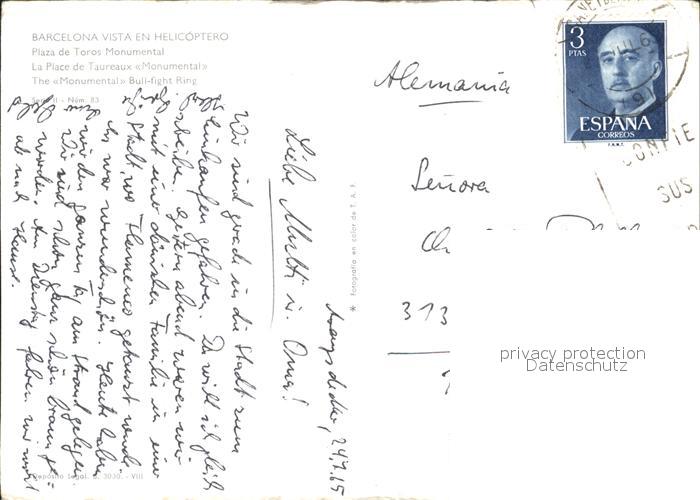 BARCELONA VISTA EN HELICÓPTERO
Plaza de Toros Monumental
La Place de Taureaux «Monumental»
The «Monumental» Bull-fight Ring
Serie II - Núm. 83
24.7.65
Liebe Mutti u. Oma!
Wir sind grade in die Stadt zum
Einkaufen gefahren. Da will ich gleich
schreiben. Gestern abend waren wir
mit einer dänischen Familie in einer
Stadt, wo Flamenco getanzt wurde.
Es war wunderschön. Heute haben
wir den ganzen Tag am Strand gelegen.
Wir sind schon ganz schön braun ge-
worden. Am Dienstag fahren wir
ab nach Haus.
Depósito Legal. B. 3030. - VIII
* Fotografía en color de I. A. F.
Alemania
Señora
313
3
PTAS
ESPAÑA
CORREOS
F.N.M.T.
SUS
privacy protection
Datenschutz